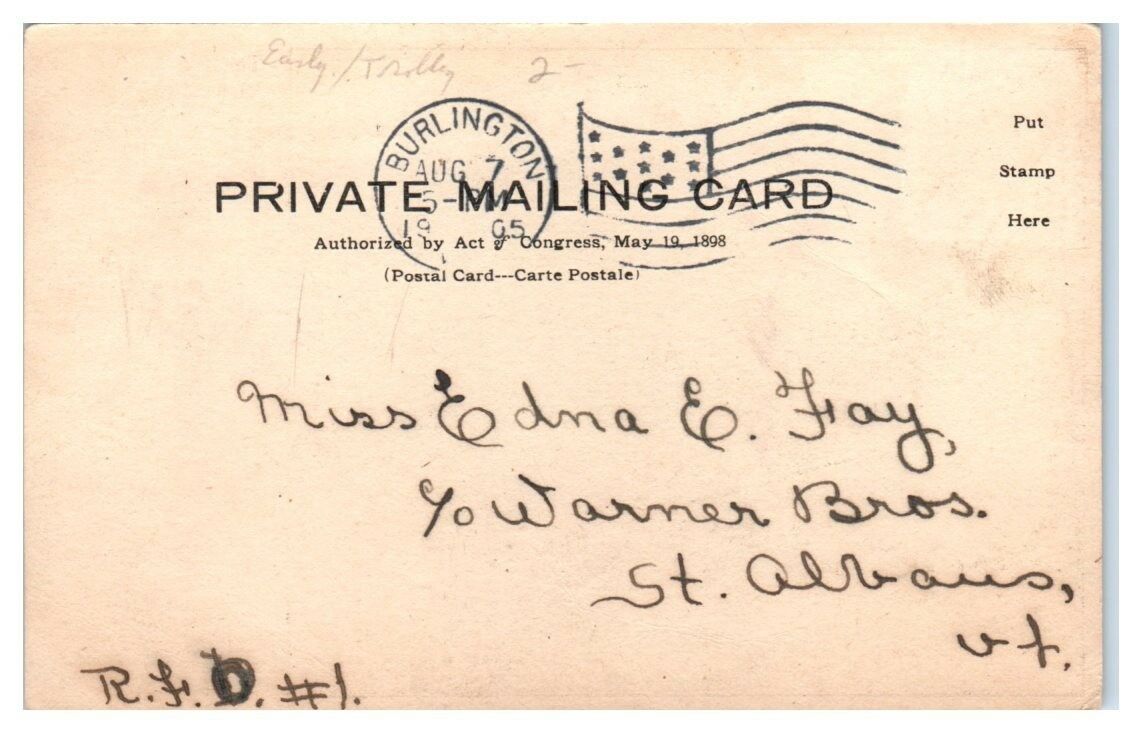 Early/Trolley 2-
BURLINGTON
AUG 7
5-PM
1905
Put
Stamp
Here
PRIVATE MAILING CARD
Authorized by Act of Congress, May 19, 1898
(Postal Card---Carte Postale)
Miss Edna E. Fay,
c/o Warner Bros.
St. Albans,
Vt.
R.F.D. #1.